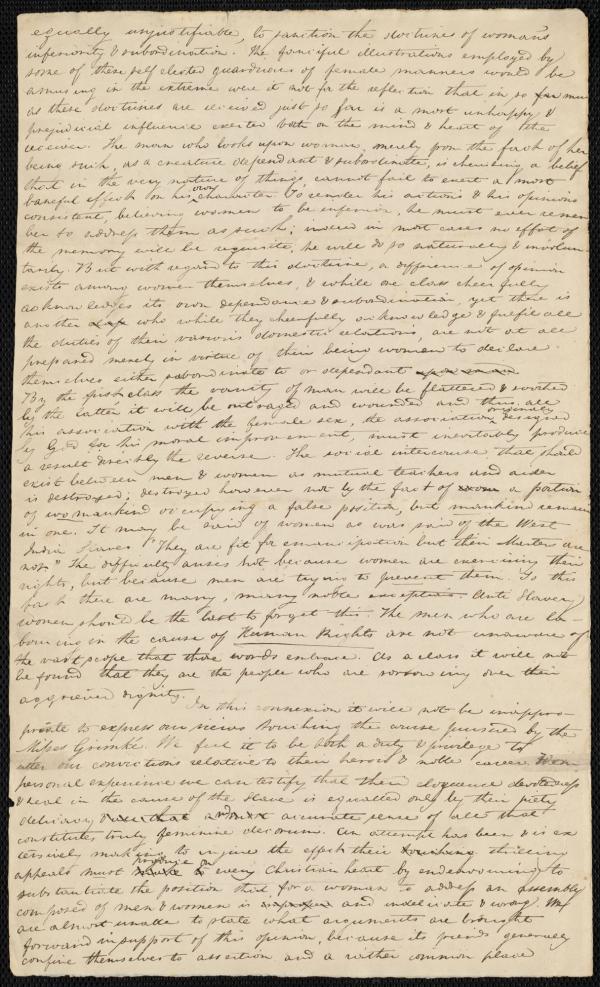 equally unjustifiable, to sanction the doctrines of woman's
inferiority & subordination. The fanciful illustrations employed by
some of these self elected guardians of female manners would be
amusing in the extreme were it not for the reflection that in so far
as these doctrines are received just so far is a most unhappy &
prejudicial influence exerted both on the mind & heart of the
receiver. The man who looks upon woman, merely from the fact of her
being such, as a creature dependant & subordinate, is cherishing a belief
that in the very nature of things cannot fail to exert a most
baneful effect on his own character. To render his actions & his opinions
consistent, believing women to be inferior, he must ever remem
ber to address them as such; indeed in most cases no effort of
the memory will be requisite, he will do so naturally & involun
tarily. But with regard to this doctrine, a difference of opinion
exists among women themselves, & while one class cheerfully
acknowledges its own dependance & subordination, yet there is
another who while they cheerfully acknowledge & fulfil all
the duties of their various domestic relations, are not at all
prepared merely in virtue of their being women to declare
themselves either subordinate to or dependant
By the first class the vanity of man will be flattered & excited
by the latter it will be outraged and wounded and thus all
his association with the female sex, the association originally designed
by God for his moral improvement, must inevitably produce
a result directly the reverse. The social intercourse that should
exist between men & women as mutual teachers and aiders
is destroyed; destroyed however not by the fact of a portion
of womankind occupying a false position, but mankind remain
in one. It may be said of women as was said of the West
India Slaves "They are fit for emancipation but their Masters are
not." The difficulty arises not because women are exercising their
rights, but because men are trying to prevent them. To this
fact there are many, many noble exceptions. Anti Slavery
women should be the last to forget this. The men who are la-
bouring in the cause of Human Rights are not unaware of
the vast scope that those words embrace. As a class it will not
be found that they are the people who are sorrowing over their
aggrieved dignity.
In this connexion it will not be inappro-
priate to express our views touching the course pursued by the
Misses Grimké. We feel it to be both a duty & privilege to
utter our convictions relative to their heroic & noble career. From
personal experience we can testify that their eloquence devotedness
& zeal in the cause of the slave is equalled only by their piety
delicacy & accurate sense of all that
constitutes truly feminine decorum. An attempt has been & is ex
tensively making to injure the effect their thrilling
appeals must produce on every Christian heart by endeavouring to
substantiate the position that for a woman to address an assembly
composed of men & women is and indelicate & wrong. We
are almost unable to state what arguments are brought
forward in support of this opinion, because its friends generally
confine themselves to assertion and a rather common place